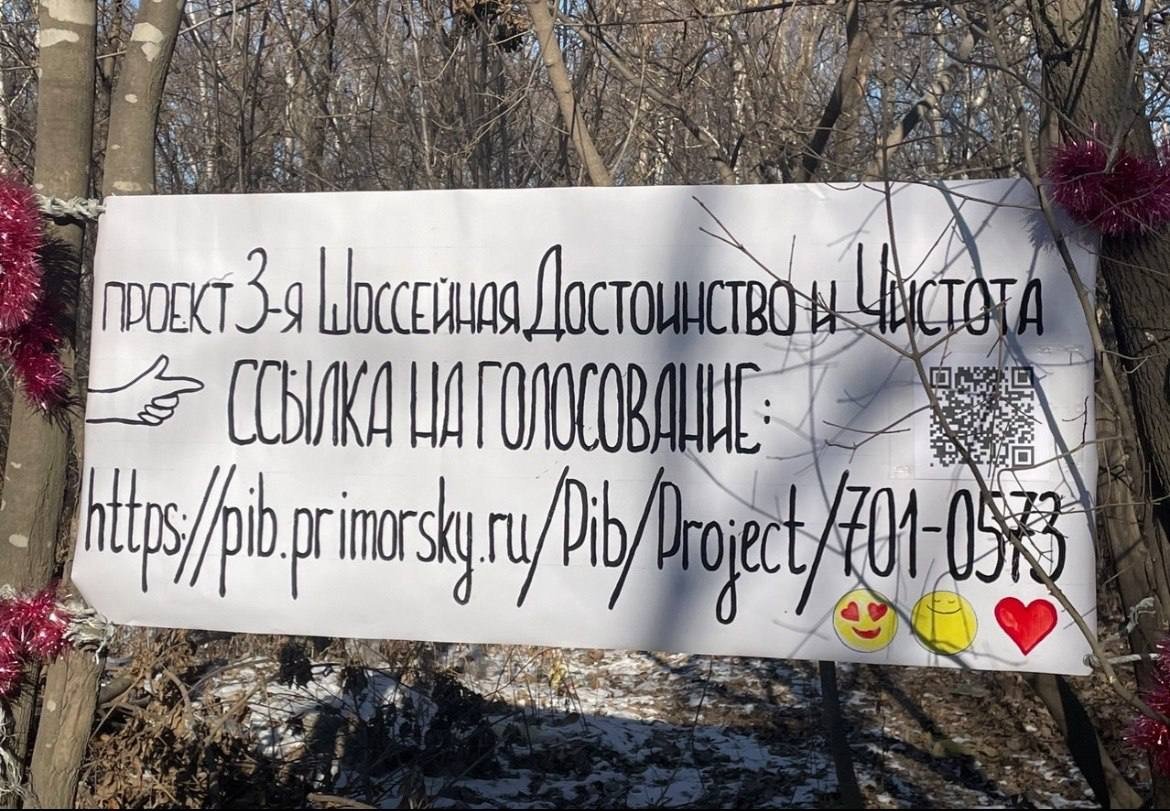 ПРОЕКТ 3-я Шоссейная Достоинство и Чистота
ССЫЛКА НА ГОЛОСОВАНИЕ:
https://pib.primorsky.ru/Pib/Project/701-0573